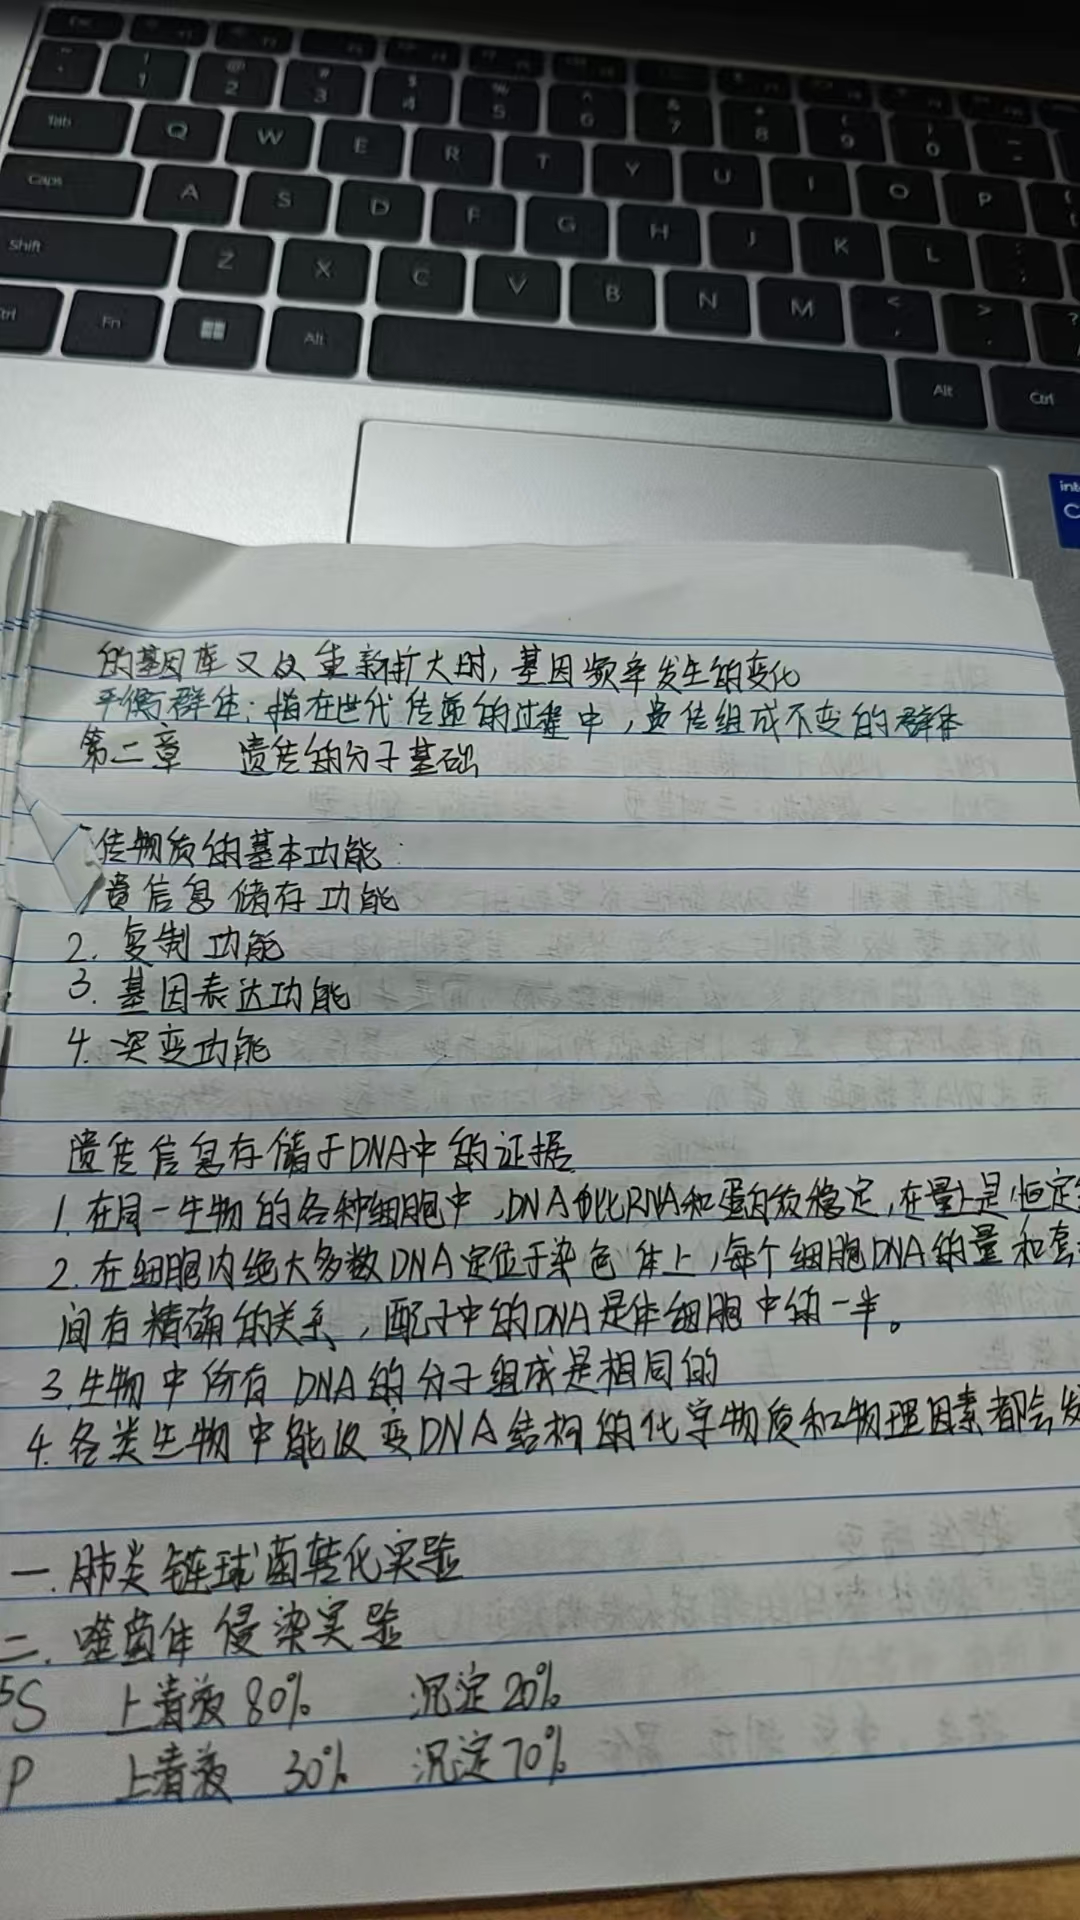 Esc
1 2 3 4 5 6 7 8 9 0
Tab Q W E R T Y U I O P
Caps A S D F G H J K L
Shift Z X C V B N M
Fn Alt Alt Ctrl
的基因库又双重新扩大时,基因频率发生的变化
平衡群体:指在世代传递的过程中,遗传组成不变的群体
第二章 遗传的分子基础
传物质的基本功能:
信息储存功能
2. 复制功能
3. 基因表达功能
4. 突变功能
遗传信息存储于DNA中的证据
1. 在同一生物的各种细胞中,DNA都比RNA和蛋白质稳定,在量上是恒定
2. 在细胞内绝大多数DNA定位于染色体上,每个细胞DNA的量和
间有精确的关系,配子中的DNA是体细胞中的一半。
3.生物中所有DNA的分子组成是相同的
4.各类生物中能改变DNA结构的化学物质和物理因素都会发
一.肺炎链球菌转化实验
二.噬菌体侵染实验
S 上清液80% 沉淀20%
P 上清液 30% 沉淀70%